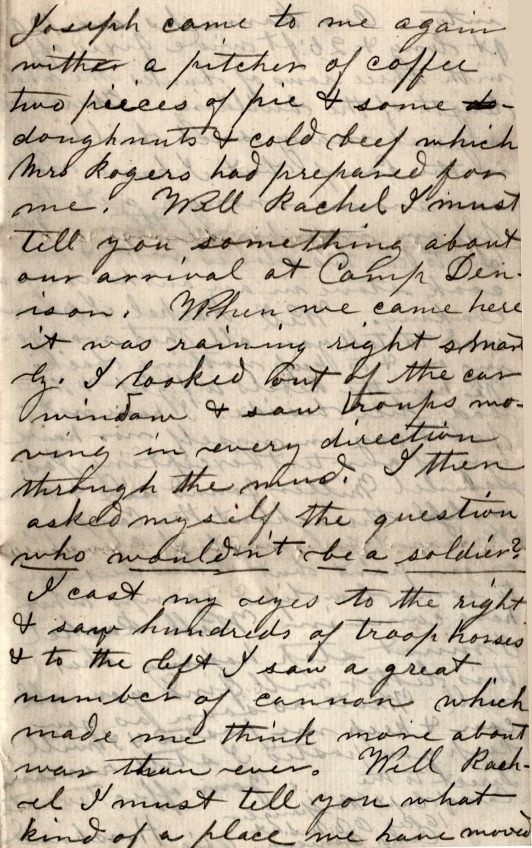 Joseph came to me again
with a pitcher of coffee
two pieces of pie & some do-
doughnuts & cold beef which
Mrs Rogers had prepared for
me. Well Rachel I must
till you something about
our arrival at Camp Den-
ison. When we came here
it was raining right smart
ly. I looked out of the car
window & saw troups mo-
ving in every direction
through the mud. I then
asked myself the question
who wouldn't be a soldier?
I cast my eyes to the right
& saw hundreds of troop horses
& to the left I saw a great
number of cannon which
made me think more about
war than ever. Well Rach-
el I must tell you what
kind of a place we have moved